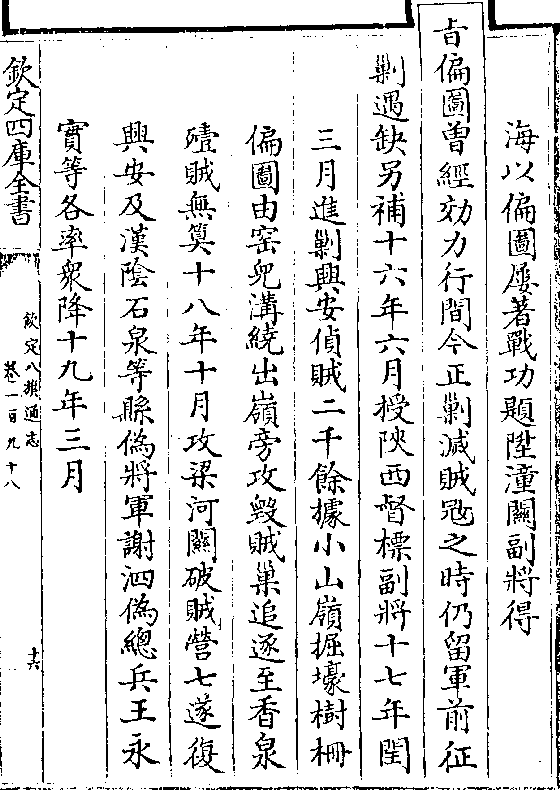 海以偏圖屢著戰功題陞潼關副將得
旨偏圖曾經効力行間今正剿滅賊冦之時仍留軍前征
剿遇缺另補十六年六月授陜西督標副將十七年閏
三月進剿興安偵賊二千餘據小山嶺掘壕樹柵
偏圖由窑兒溝繞出嶺旁攻毀賊巢追逐至香泉
殪賊無算十八年十月攻梁河關破賊營七遂復
興安及漢陰石泉等縣偽將軍謝泗偽總兵王永
實等各率衆降十九年三月
欽定四庫全書
欽定八旗通志
卷一百九十八
十六